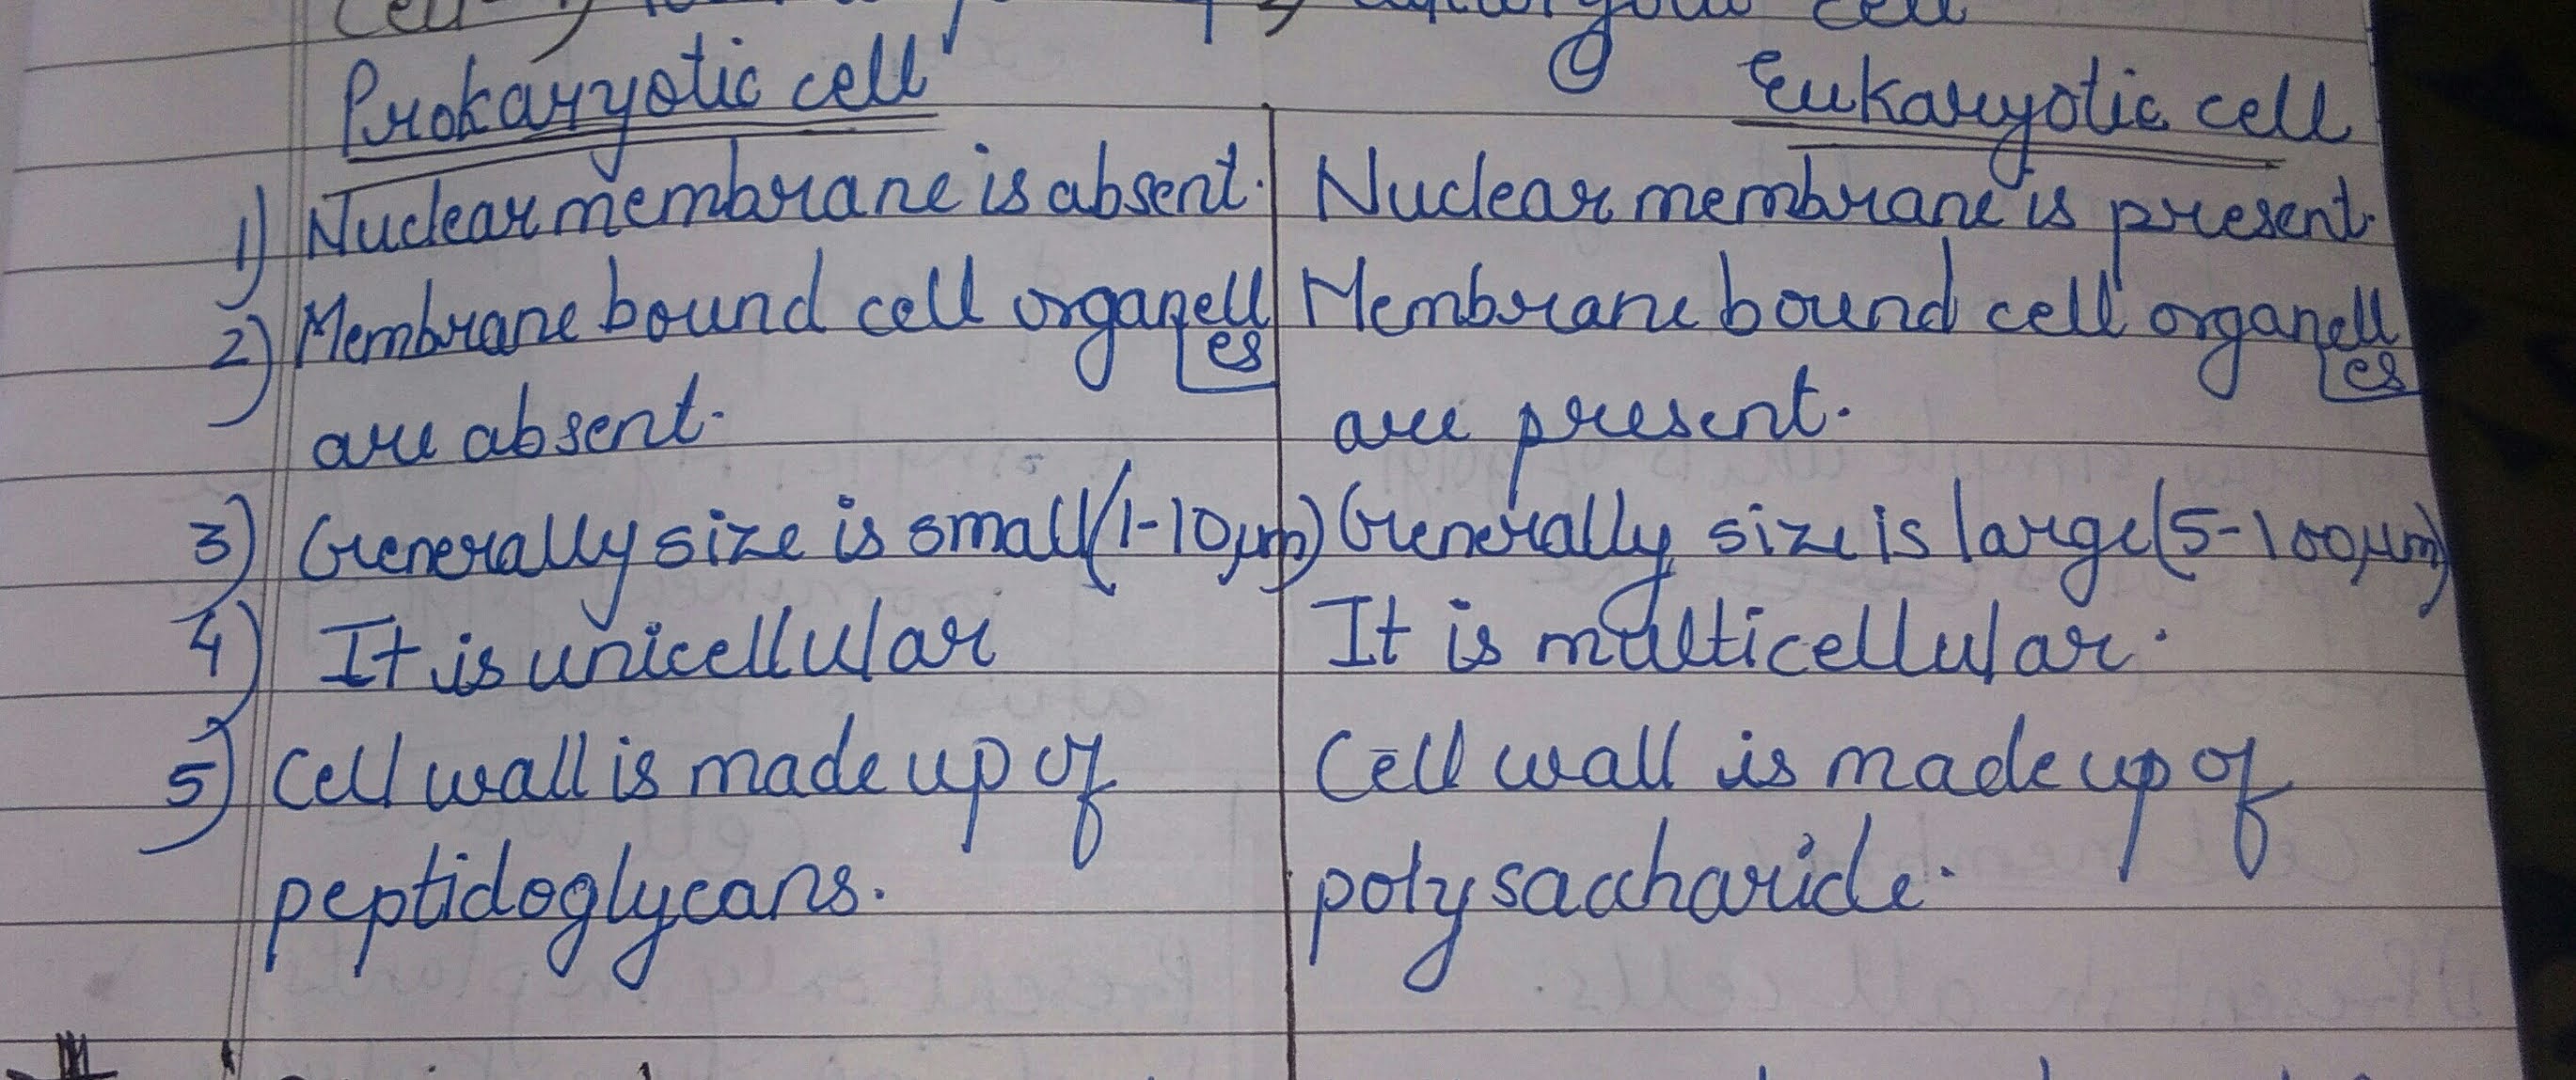 Prokaryotic cell
Eukaryotic cell
1) Nuclear membrane is absent.
Nuclear membrane is present.
2) Membrane bound cell organell
es
are absent.
Membrane bound cell organell
es
are present.
3) Generally size is small (1-10μm)
Generally size is large (5-100μm)
4) It is unicellular
It is multicellular.
5) Cell wall is made up of
peptidoglycans.
Cell wall is made up of
polysaccharide.